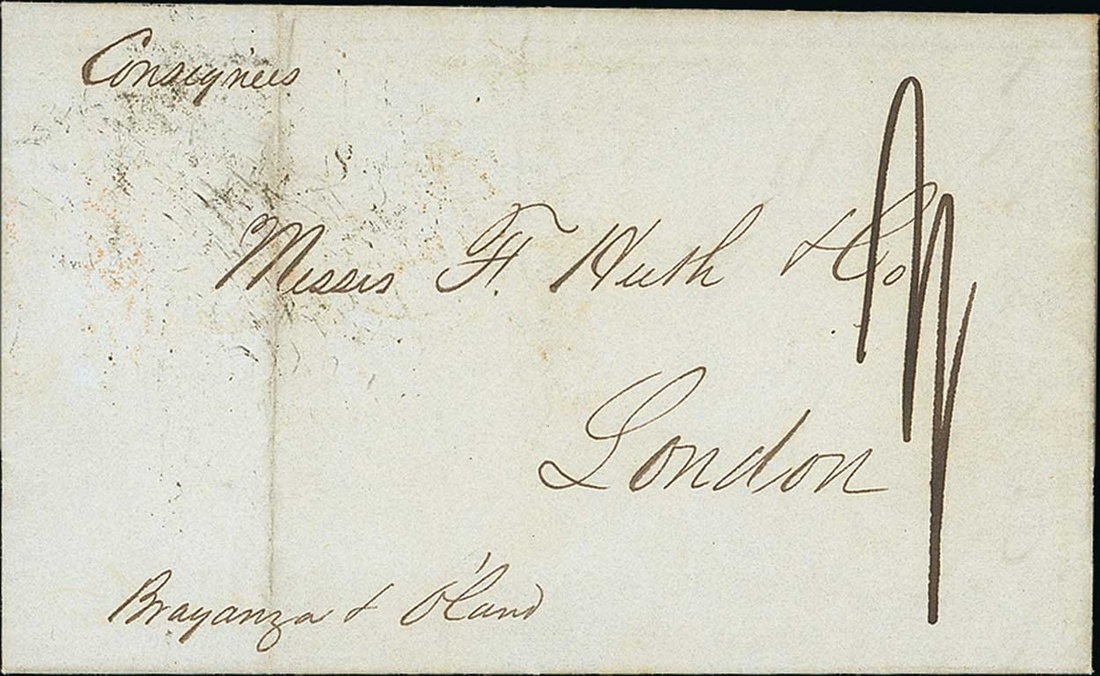 Consignees
Messrs F. Huth & Co
London
Braganza & O'land